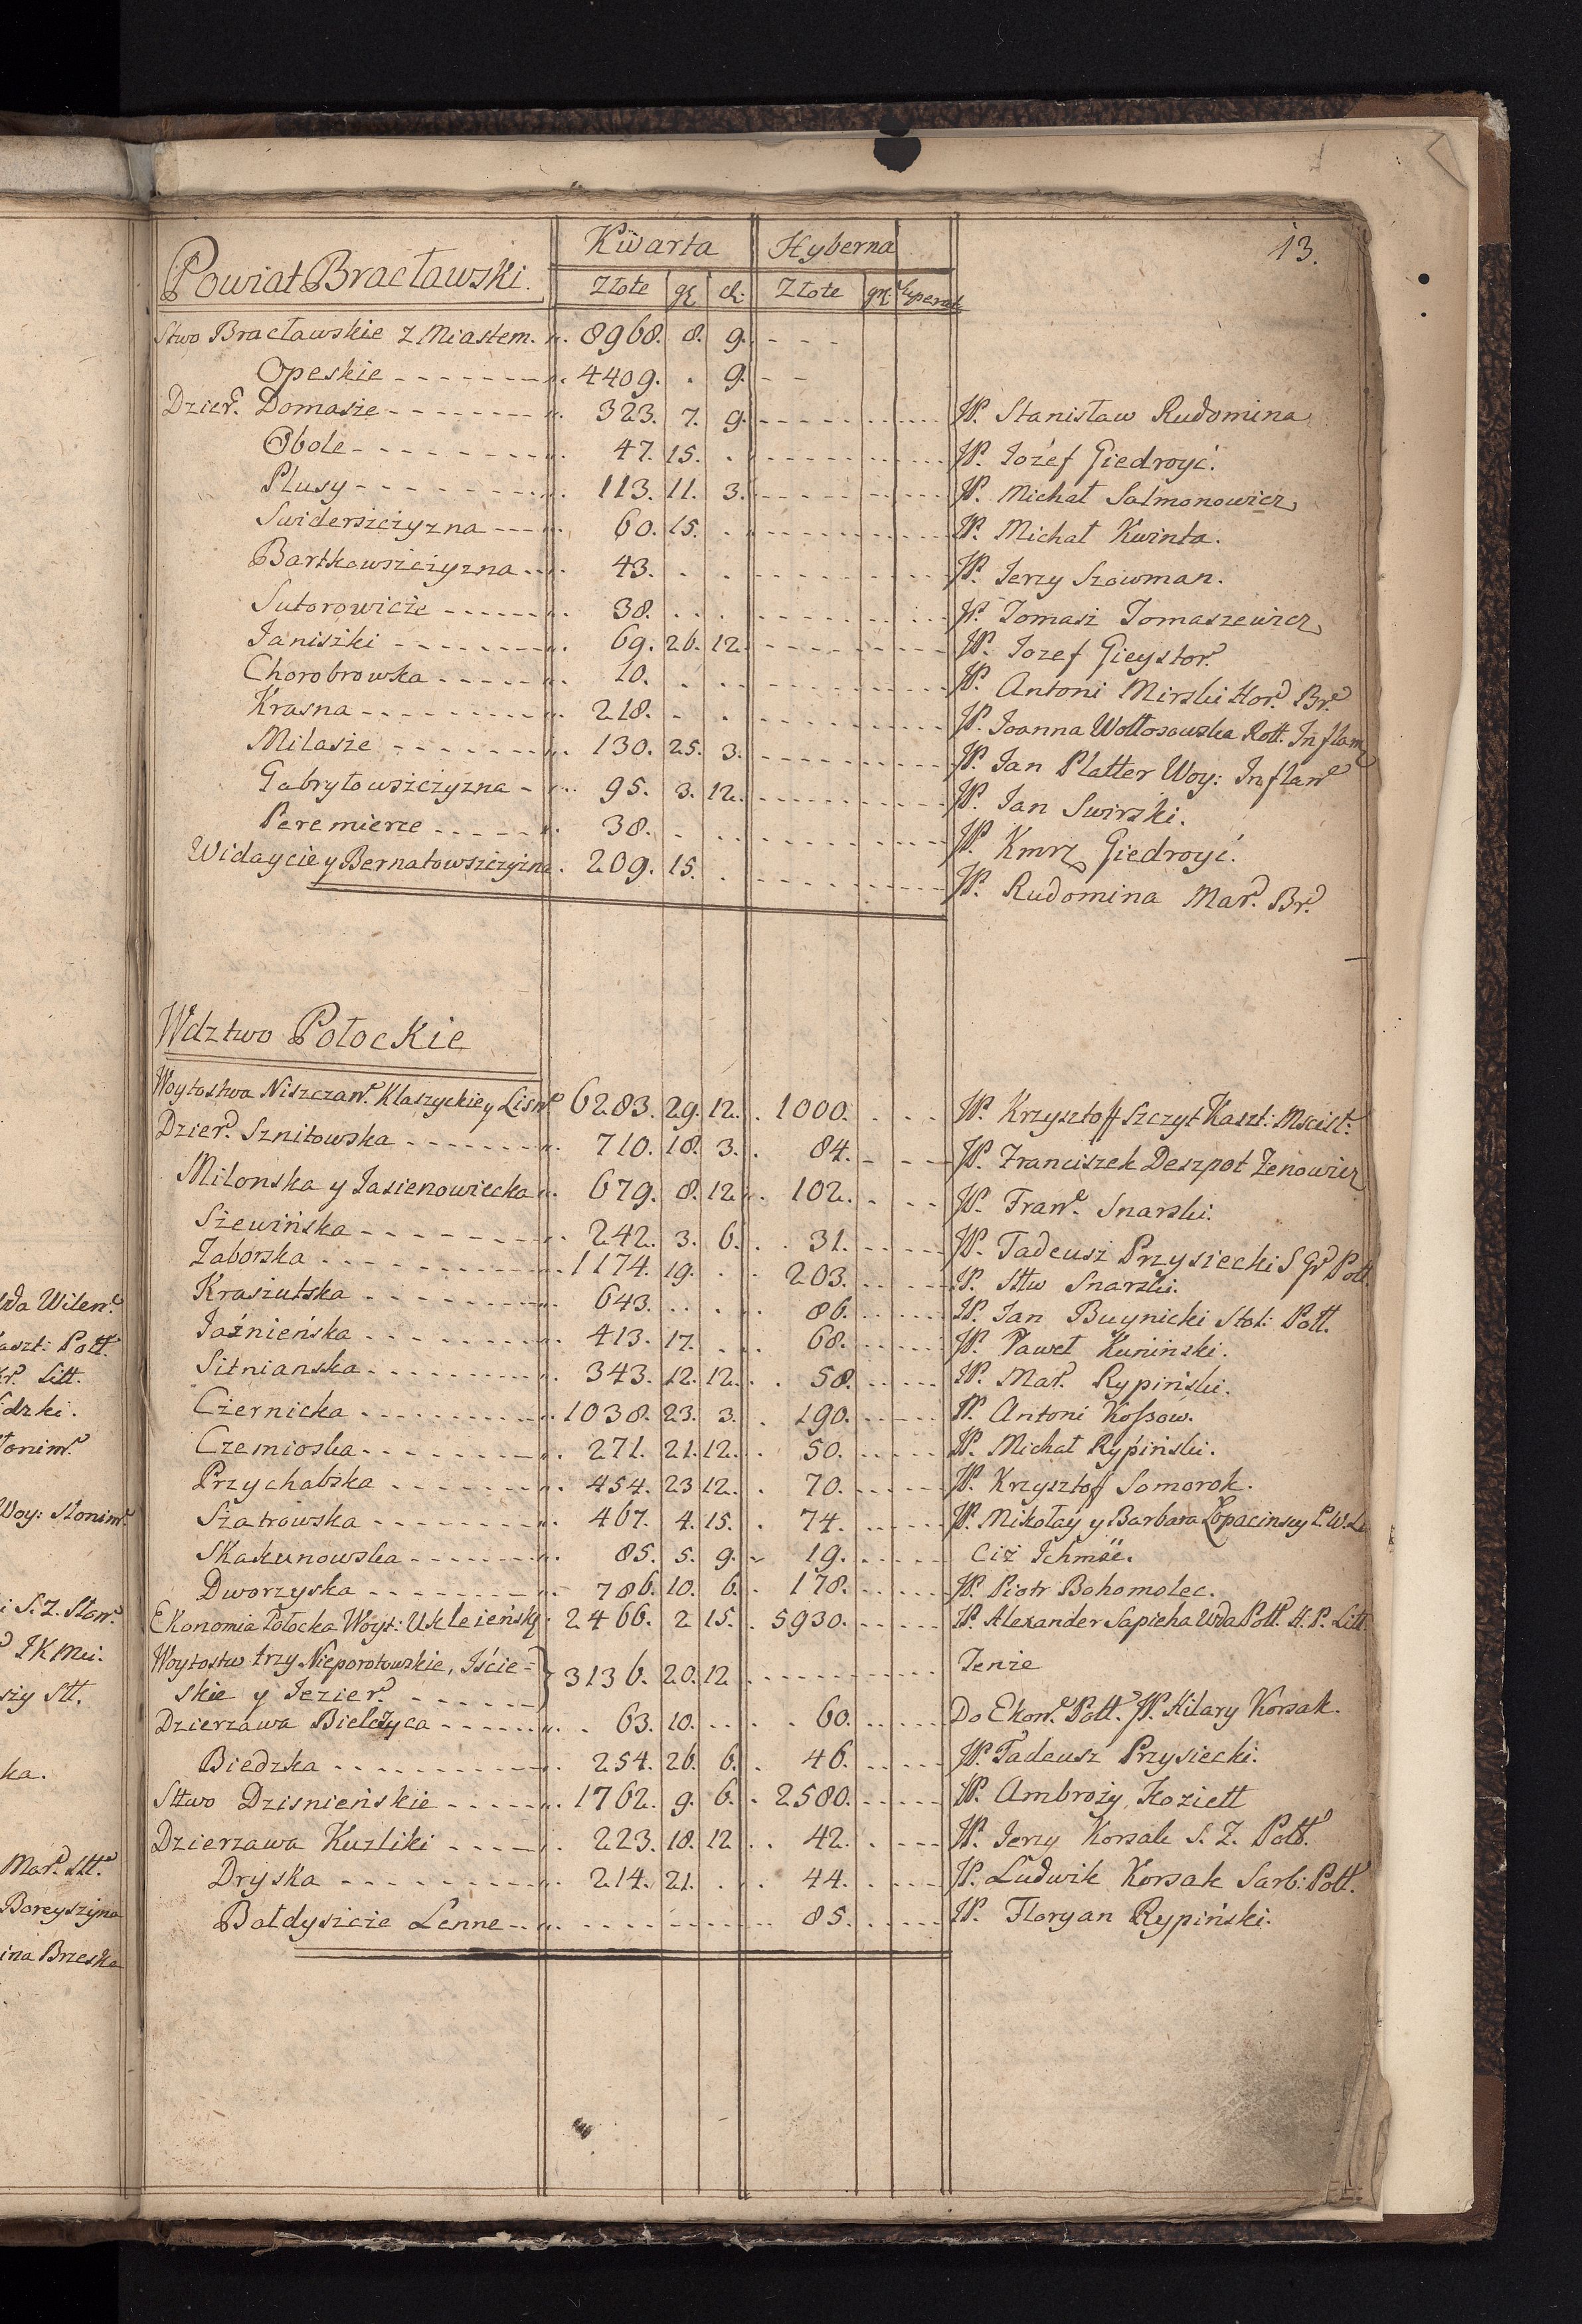 13.
Kwarta Hyberna
Powiat Bracławski. Złote gr. d: Złote gr:
Stwo Bracławskie z Miastem. 8968. 8. 9.
Opeskie 4409. . 9.
Dzier. Domasze 323. 7. 9. JP. Stanisław Rudomina
Obole 47. 15. . JP. Jozef Giedroyć.
Plusy 113. 11. 3. JP. Michał Salmonowicz
Swiderszczyzna 60. 15. . JP. Michał Kwinta.
Bartkowszczyzna 43. . . JP. Jerzy Szowman.
Sutorowicze 38. . . JP. Tomasz Tomaszewicz
Janiszki 69. 26. 12. JP. Jozef Gieysztor.
Chorobrowska 10. . . JP. Antoni Mirski Hor. Br.
Krasna 218. . . JP. Joanna Wołłosowska Rott. Inflan
Milasze 130. 25. 3. JP. Jan Platter Woy: Inflan
Gabryłowszczyzna 95. 3. 12. JP. Jan Swirski.
Peremierze 38. . . JP. Kmrz Giedroyć.
Widaycie y Bernatowszczyzna. 209. 15. . JP. Rudomina Mar. Br.
Wdztwo Połockie
Woytostwa Niszczan. Klaszyckie y Lisn. 6283. 29. 12. 1000. JP. Krzysztoff Szczyt Kaszt: Mscisł:
Dzier. Sznitowska 710. 18. 3. 84. JP. Franciszek Deszpot Zenowicz
Milonska y Jasienowiecka 679. 8. 12. 102. JP. Fran. Snarski.
Szewińska 242. 3. 6. 31. JP. Tadeusz Przysiecki S Gr Poł.
Zaborska 1174. 19. . 203. JP. Sttw Snarski.
Kraszutska 643. . . 86. JP. Jan Buynicki Stol: Połł.
Jaźnieńska 413. 17. . 68. JP. Paweł Kuniński.
Sitnianska 343. 12. 12. 58. JP. Mar. Rypiński.
Czernicka 1038. 23. 3. 190. JP. Antoni Kossow.
Czemioska 271. 21. 12. 50. JP. Michał Rypiński.
Przychabska 454. 23 12. 70. JP. Krzysztoff Somorok.
Szatrowska 467. 4. 15. 74. JP. Mikołay y Barbara Łopacinscy P. W. Li
Skakunowska 85. 5. 9. 19. Ciż Ichmće.
Dworzyska 786. 10. 6. 178. JP. Piotr Bohomolec.
Ekonomia Połocka Woyt: Uskleieńsky 2466. 2 15. 5930. JP. Alexander Sapieha Wda Połł. H. P. Litt
Woytostw trzy Nieporotowskie, Iście-
skie y Jezier. 3136. 20. 12 Tenże
Dzierzawa Bielczyca 63. 10. 60. Do Ekon. Połł. JP. Hilary Korsak.
Biedzka 254. 26. 6. 46. JP. Tadeusz Przysiecki.
Sttwo Dzisnieńskie 1762. 9. 6. 2580. JP. Ambroży Koziełł
Dzierzawa Kuzliki 223. 18. 12 42. JP. Jerzy Korsak S. Z. Połł.
Dryska 214. 21. . 44. JP. Ludwik Korsak Sarb: Połł.
Bałdyszcze Lenne 85. JP. Floryan Rypiński.
Wda Wilen.
Kaszt: Połł.
Litt.
Woy: Słonim.
S. Z. Słon.
JKMci.
Mar. Litt.
Boreyszyna
ina Brzeska